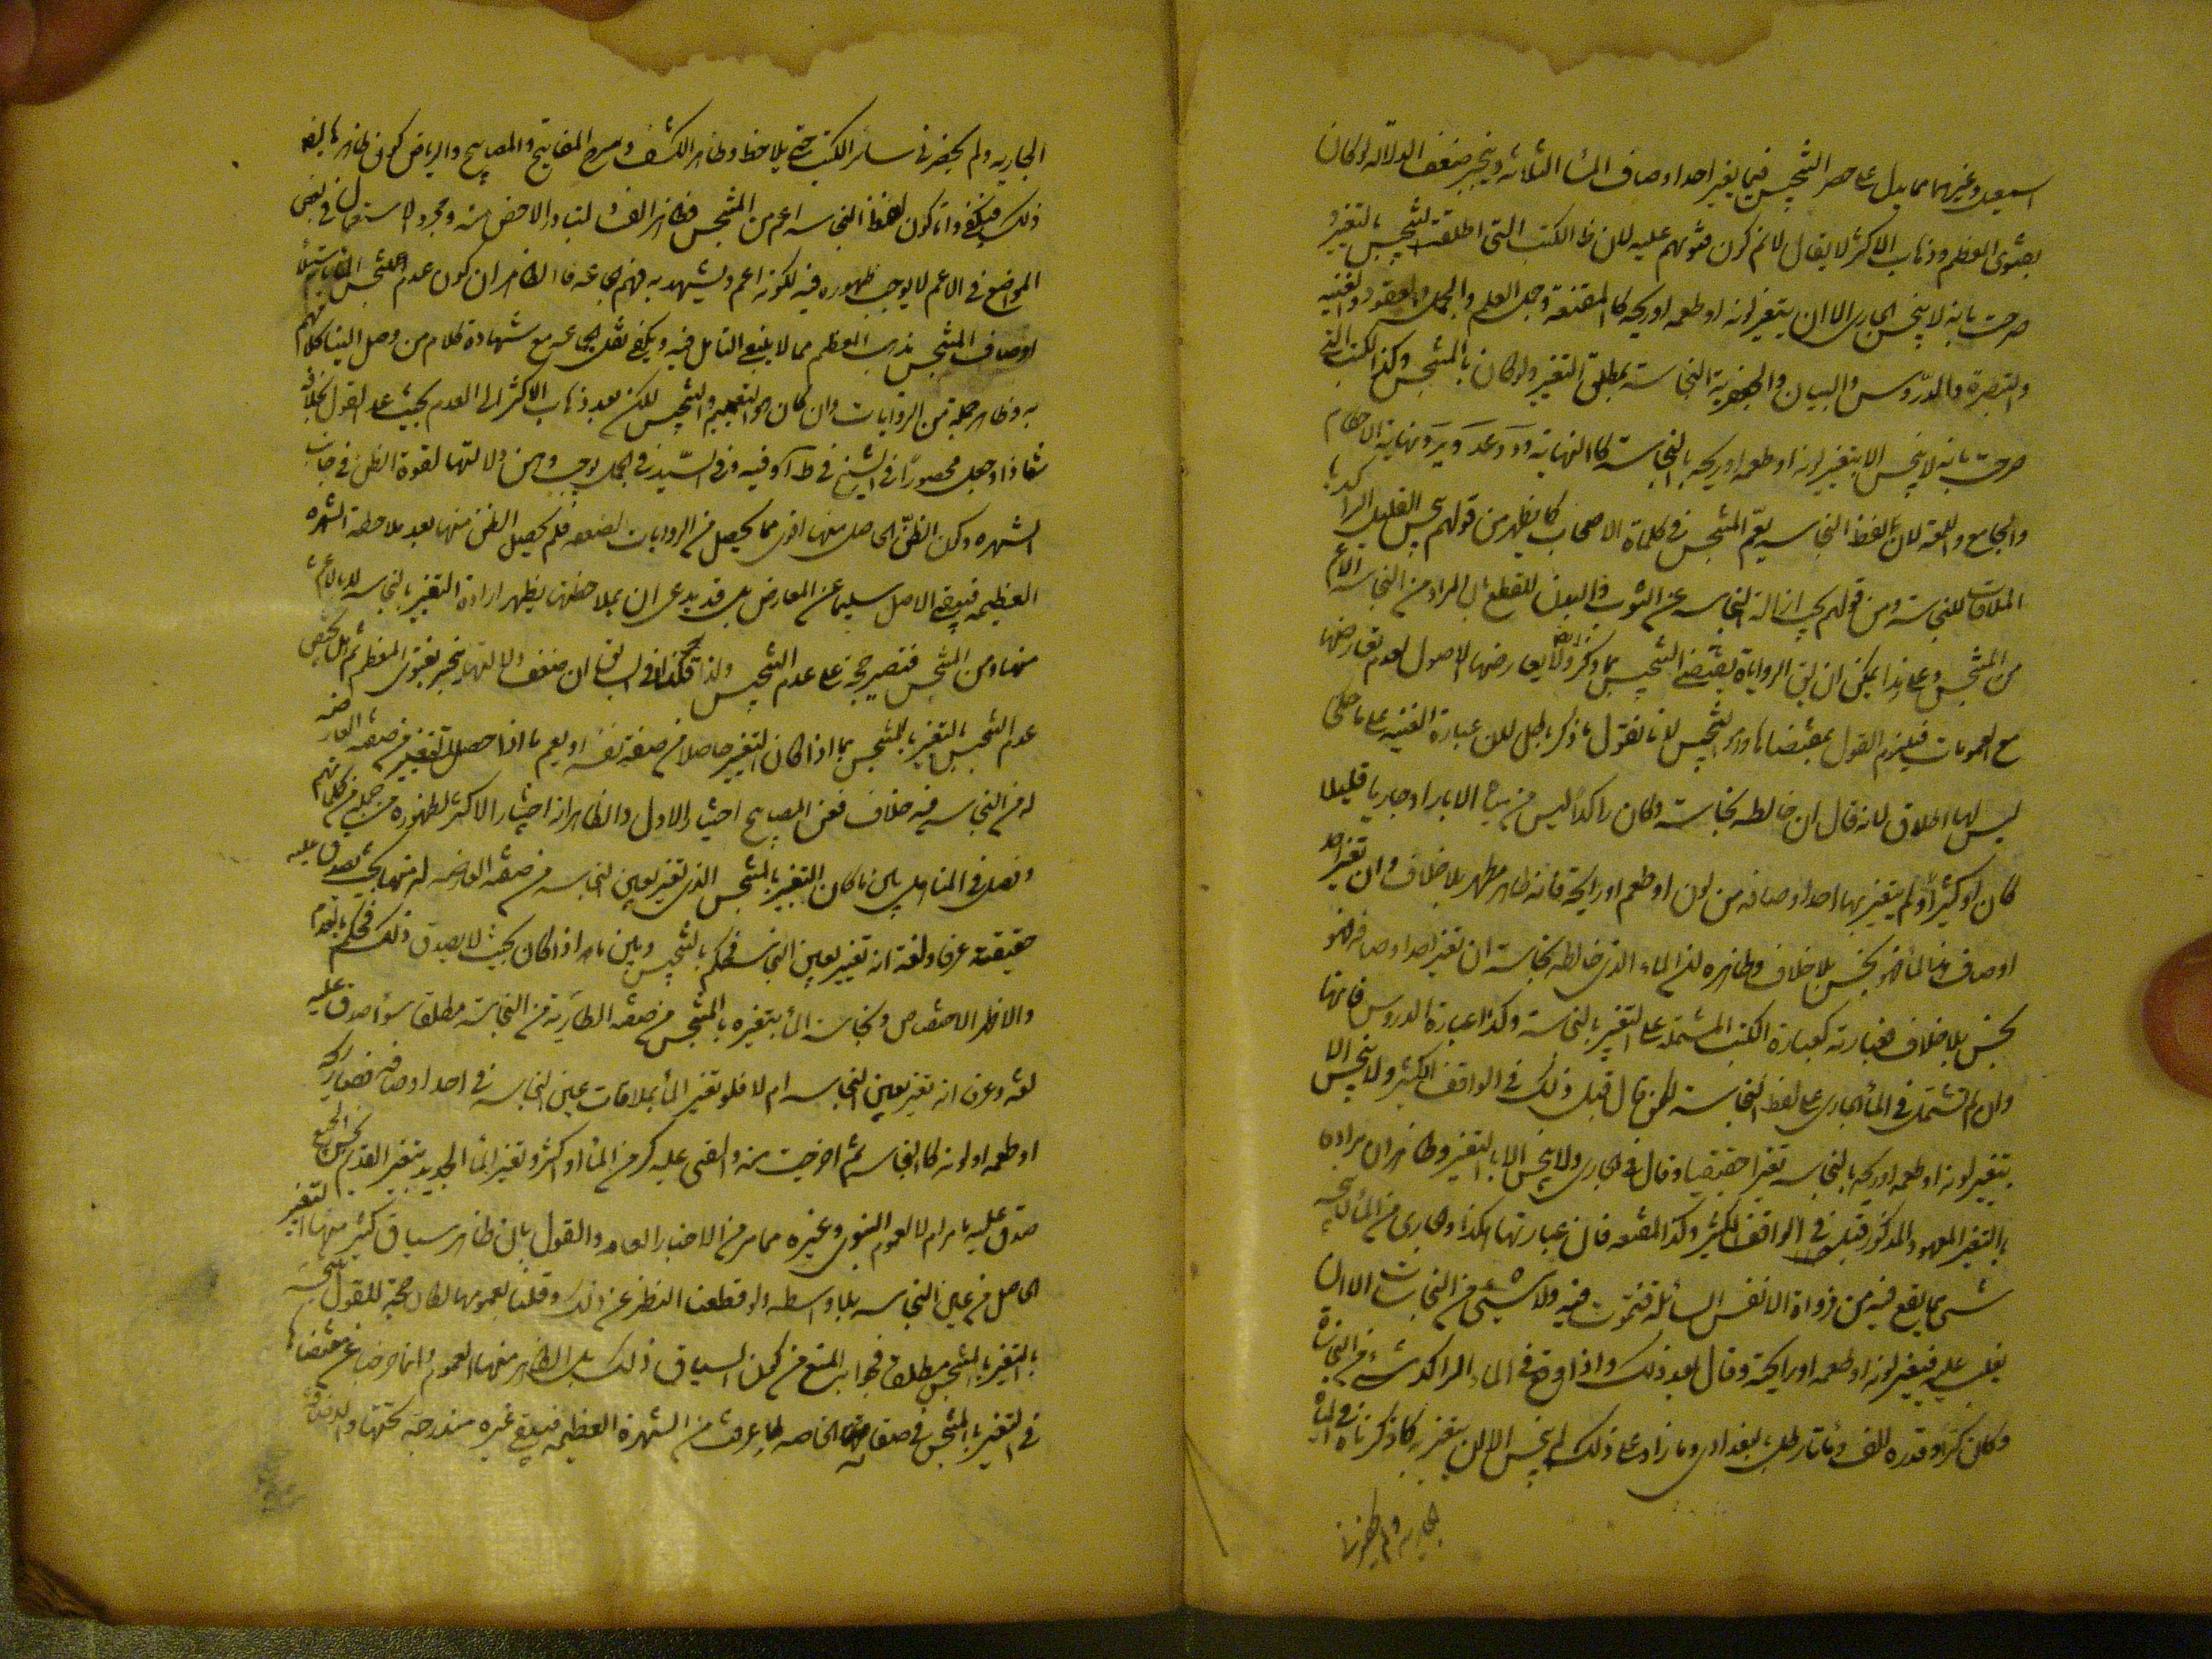 السعيد وغيرهما مما يدل على حصر التنجيس فيما يغير احد اوصاف الماء الثلاثة وينجبر ضعف الدلالة لو كان
بفتوى المعظم وذهاب الاكثر لا يقال لا نم كون فتويهم عليه لان ظ الكتب التى اطلقت التنجيس بالتغير و
صرحت بانه لا ينجس الجارى الا ان يتغير لونه او طعمه او ريحه كالمقنعة وجمل العلم والجمل والعقود والغنية
والتبصرة والدروس والبيان والجعفرية النجاسة بمطلق التغير ولو كان بالمتنجس وكذا الكتب التى
صرحت بانه لا ينجس الا بتغير لونه او طعمه او ريحه بالنجاسة كالنهاية ونهاية الاحكام
والجامع واللمعة لان لفظ النجاسة يعم المتنجس فى كلمات الاصحاب كما يظهر من قولهم ينجس القليل الراكد ب
الملاقات للنجاسة ومن قولهم يجب ازالة النجاسة عن الثوب والبدن للقطع بان المراد من النجاسة الاعم
من المتنجس وعلى هذا يمكن ان يق الروايات يقتضى التنجيس بما ذكر ولا يعارضها الاصول لعدم تعارضها
مع العمومات فيلزم القول بمقتضاها وهو التنجيس لانا نقول ما ذكر باطل لان عبارة الغنية على ما حكى
ليس لها اطلاق لانه قال ان خالطه نجاسة وكان راكدا ليس من مياه الابار او جاريا قليلا
كان او كثيرا ولم يتغير بها احد اوصافه من لون او طعم او رايحة فانه طاهر مطهر بلا خلاف وان تغير احد
اوصاف هذا الماء فهو نجس بلا خلاف وظاهره ان الماء الذى خالطه نجاسة ان تغير احد اوصافه فهو
نجس بلا خلاف فعبارته كعبارة الكتب المشتملة على التغير بالنجاسة وكذا عبارة الدروس فانها
وان لم تشتمل فى الماء الجارى على لفظ النجاسة لكن قال قبل ذلك فى الواقف الكثير ولا ينجس الا
بتغير لونه او طعمه او ريحه بالنجاسة تغيرا حقيقيا وقال فى الجارى ولا ينجس الا بالتغير وظاهر ان مراده
بالتغير المعهود المذكور قبله فى الواقف الكثير وكذا المقنعه فان عبارتها هكذا والجارى من الماء لا ينجسه
شىء مما يقع فيه من ذوات الانفس السائلة فتموت فيه ولا شىء من النجاسات الا ان
يغلب عليه فيغير لونه او طعمه او رايحته وقال بعد ذلك واذا وقع فى الماء الراكد شىء من النجاسات
وكان كرا وقدره الف ومأتا رطل بالبغدادى وما زاد على ذلك لم ينجس الا ان يتغير به كما ذكرناه فى المياه
الجاريه ولم
الجاريه ولم يحضرنى سائر الكتب حتى يلاحظ وظاهر الكشف وشرح المفاتيح والمصابيح والرياض كون ظاهرها ايضا
ذلك فيكفى واما كون لفظ النجاسة اعم من المتنجس فظاهر الفساد لتبادر الاخص منه ومجرد الاستعمال فى بعض
المواضع فى الاعم لا يوجب ظهوره فيه لكونه اعم ويشهد به فهم الجماعة فالظاهر ان كون عدم التنجس
اوصاف المتنجس مذهب المعظم مما لا ينبغى التامل فيه ويكفى نقل الجماعه مع شهادة كلام من وصل الينا كلامهم
به وظاهر جملة من الروايات وان كان هو التعميم والتنجيس لكن بعد ذهاب الاكثر الى العدم بحيث عد القول بخلافه
شاذا وجعل محصورا فى الشيخ فى ط وفيه وفى السيد فى الجمل يوجب وهن دلالتها لقوة الظن فى جانب
الشهره وكون الظن الحاصل منها اقوى مما يحصل من الروايات لضعفه فلم يحصل الظن منها بعد ملاحظة الشهره
العظيمه فيبقى الاصل سليما عن المعارض بل قد يدعى ان بملاحظتها يظهر ارادة التغير بالنجاسه لا بالاعم
منها ومن المتنجس فتصير حجة على عدم التنجيس ولذا قلنا فى السابق ان ضعف دلالتها ينجبر بفتوى المعظم ثم هل يختص
عدم التنجيس بالتغير بالمتنجس بما اذا كان التغير حاصلا من صفة نفسه او يعم ما اذا حصل التغير من صفته العارضه
له من النجاسه فيه خلاف فعن المصابيح اختيار الاول والظاهر انه اختيار الاكثر لظهوره من جملة من كلماتهم
وفصل فى المناهل بين ما كان التغير بالمتنجس الذى تغير بعين النجاسه من صفته العارضه له منها بحيث يصدق عليه
حقيقة عرفا ولغة انه تغيير بعين النجاسة فحكم بالتنجيس وبين ما اذا كان بحيث لا يصدق ذلك فحكم بالعدم
والاظهر الاختصاص ونجاسة الماء بتغيره بالمتنجس من صفته الطارية من النجاسة مطلقا سواء صدق عليه
لغة وعرفا انه تغير بعين النجاسه ام لا فلو تغير الماء بملاقات عين النجاسه فى احد اوصافه فصار ريحه
او طعمه او لونه كالنجاسه ثم اخرجت منه والقى عليه كر من الماء او اكثر وتغير الماء الجديد بتغير القديم نجس الجميع
صدق عليه ما مر ام لا لعموم النبوى وغيره مما مر من الاخبار العامه والقول بان ظاهر سياق كثير منها التغير
الحاصل من عين النجاسه بلا واسطه ولو قطعنا النظر عن ذلك وقلنا بعمومها لكان حجة للقول بتنجسه
بالتغير بالمتنجس مطلقا فجوابه المنع من كون السياق ذلك بل الظاهر منها العموم وانما خرجنا عن مقتضاها
فى التغير بالمتنجس فى صفاته الخاصه لما عرفت من الشهرة العظيمه فيبقى غيره مندرجة تحتها